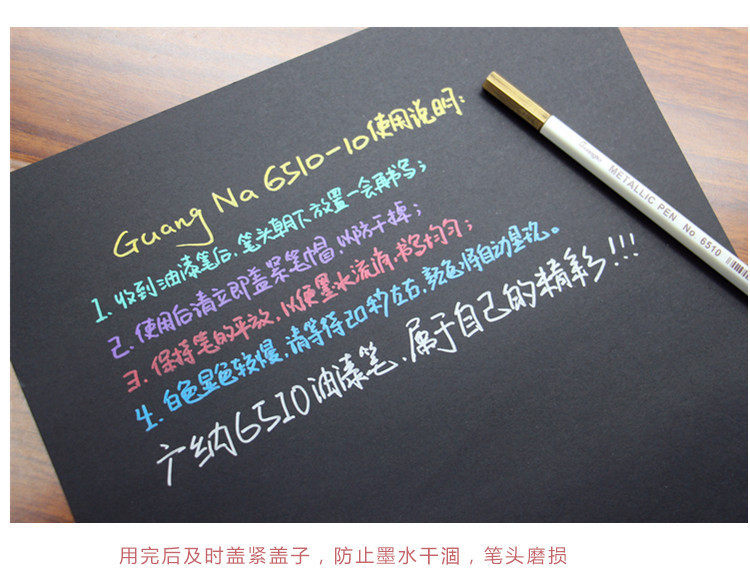 Guang Na 6510-10使用说明:
1. 收到油漆笔后,笔头朝下放置一会再书写;
2. 使用后请立即盖紧笔帽,以防干掉;
3. 保持笔的平放,以便墨水流畅书写均匀;
4. 白色显色较慢,请等待20秒左右,颜色将自动呈现。
广纳6510油漆笔,属于自己的精彩!!!
Guangna
METALLIC PEN No. 6510
用完后及时盖紧盖子，防止墨水干涸，笔头磨损